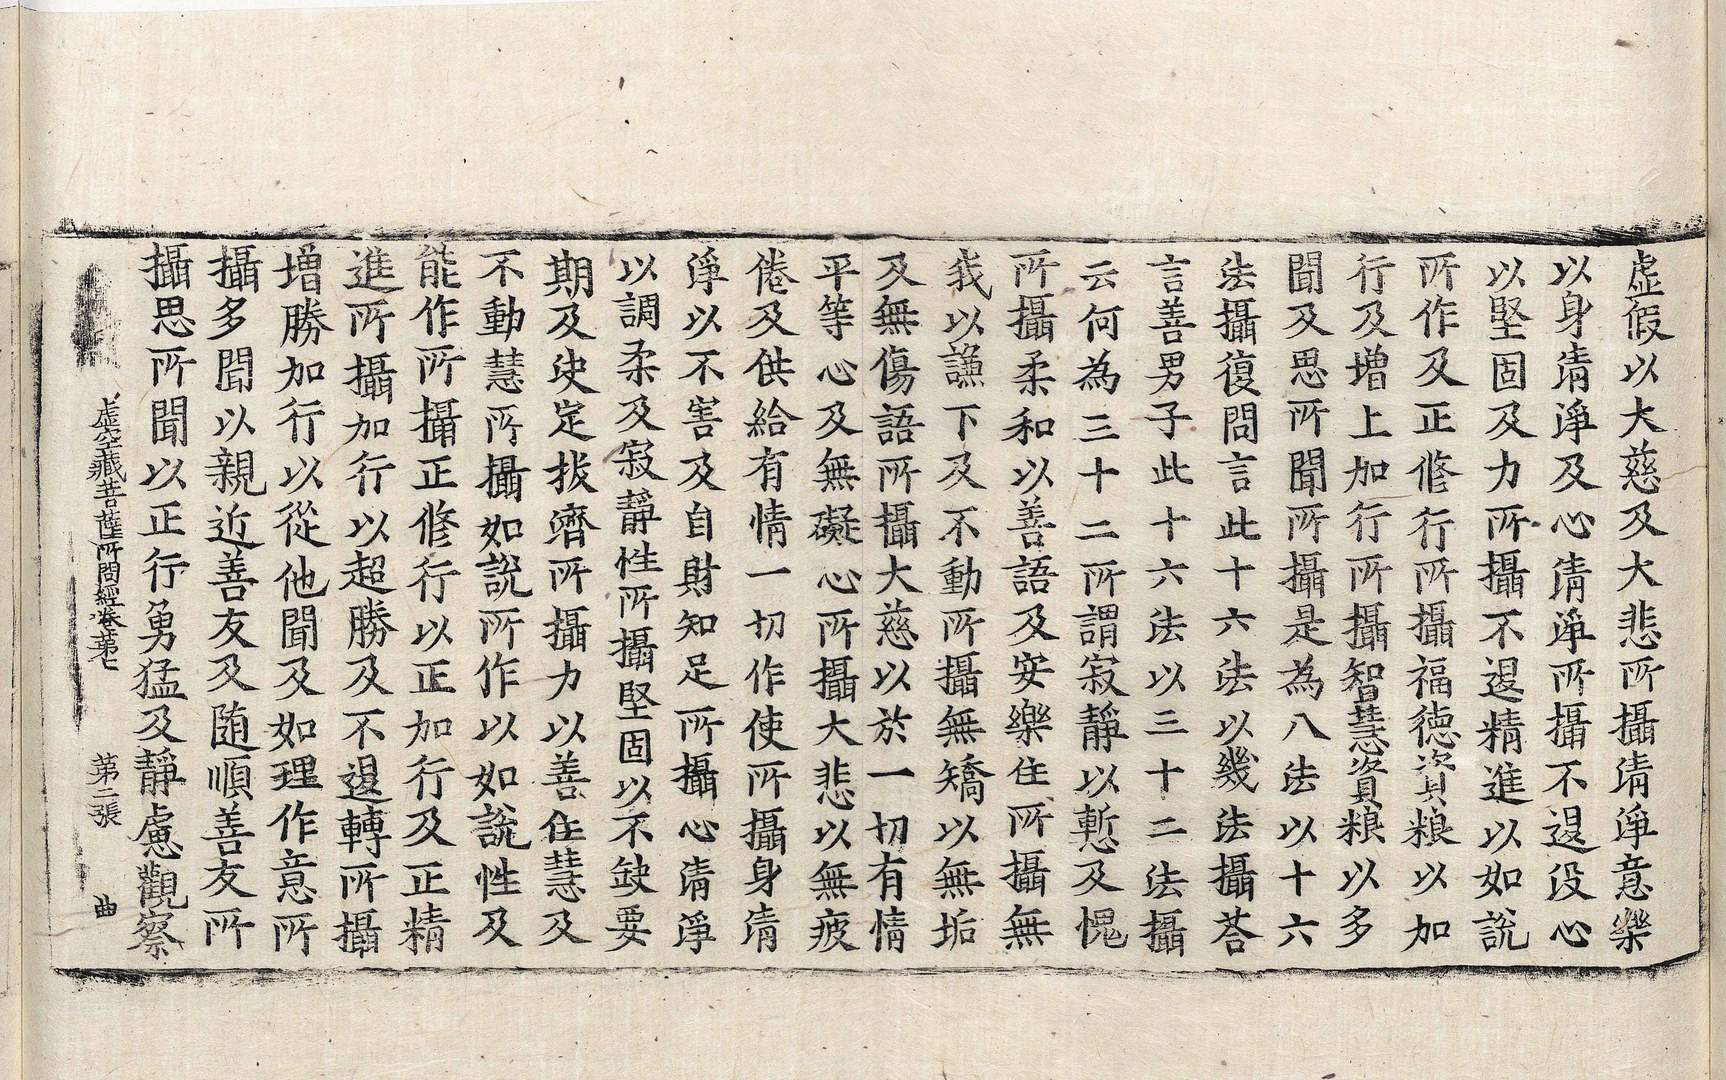 虛假以大慈及大悲所攝清淨意樂
以身清淨及心清淨所攝不退没心
以堅固及力所攝不退精進以如說
所作及正修行所攝福德資粮以加
行及增上加行所攝智慧資粮以多
聞及思所聞所攝是為八法以十六
法攝復問言此十六法以幾法攝荅
言善男子此十六法以三十二法攝
云何為三十二所謂寂靜以慙及愧
所攝柔和以善語及安樂住所攝無
我以謙下及不動所攝無矯以無垢
及無傷語所攝大慈以於一切有情
平等心及無礙心所攝大悲以無疲
倦及供給有情一切作使所攝身清
淨以不害及自財知足所攝心清淨
以調柔及寂靜性所攝堅固以不缺要
期及决定拔濟所攝力以善住慧及
不動慧所攝如說所作以如說性及
能作所攝正修行以正加行及正精
進所攝加行以超勝及不退轉所攝
增勝加行以從他聞及如理作意所
攝多聞以親近善友及随順善友所
攝思所聞以正行勇猛及靜慮觀察
虛空藏菩薩所問經卷第七 第二張 曲